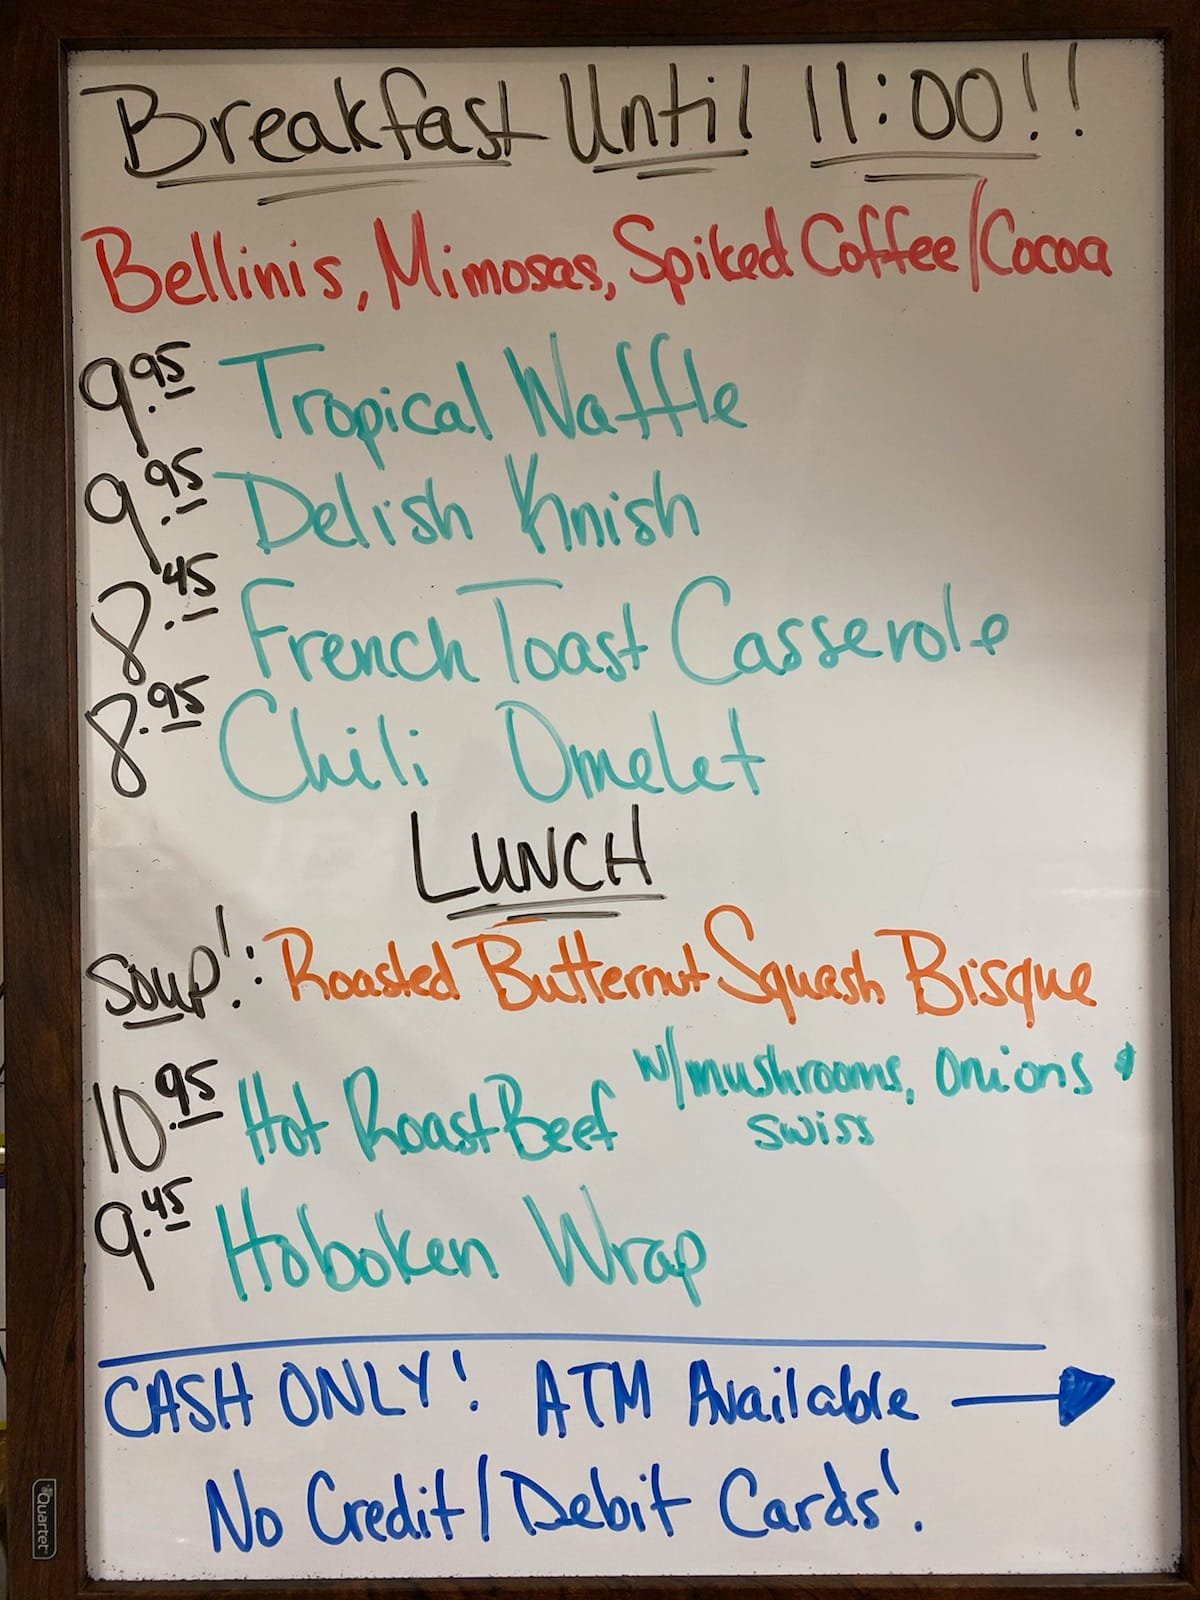 Breakfast Until 11:00!!
Bellinis, Mimosas, Spiked Coffee/Cocoa
9.95 Tropical Waffle
9.95 Delish Knish
8.45 French Toast Casserole
8.95 Chili Omelet
LUNCH
Soup!: Roasted Butternut Squash Bisque
10.95 Hot Roast Beef w/mushrooms, onions &
swiss
9.45 Hoboken Wrap
CASH ONLY! ATM Available →
No Credit/Debit Cards!
Quartet